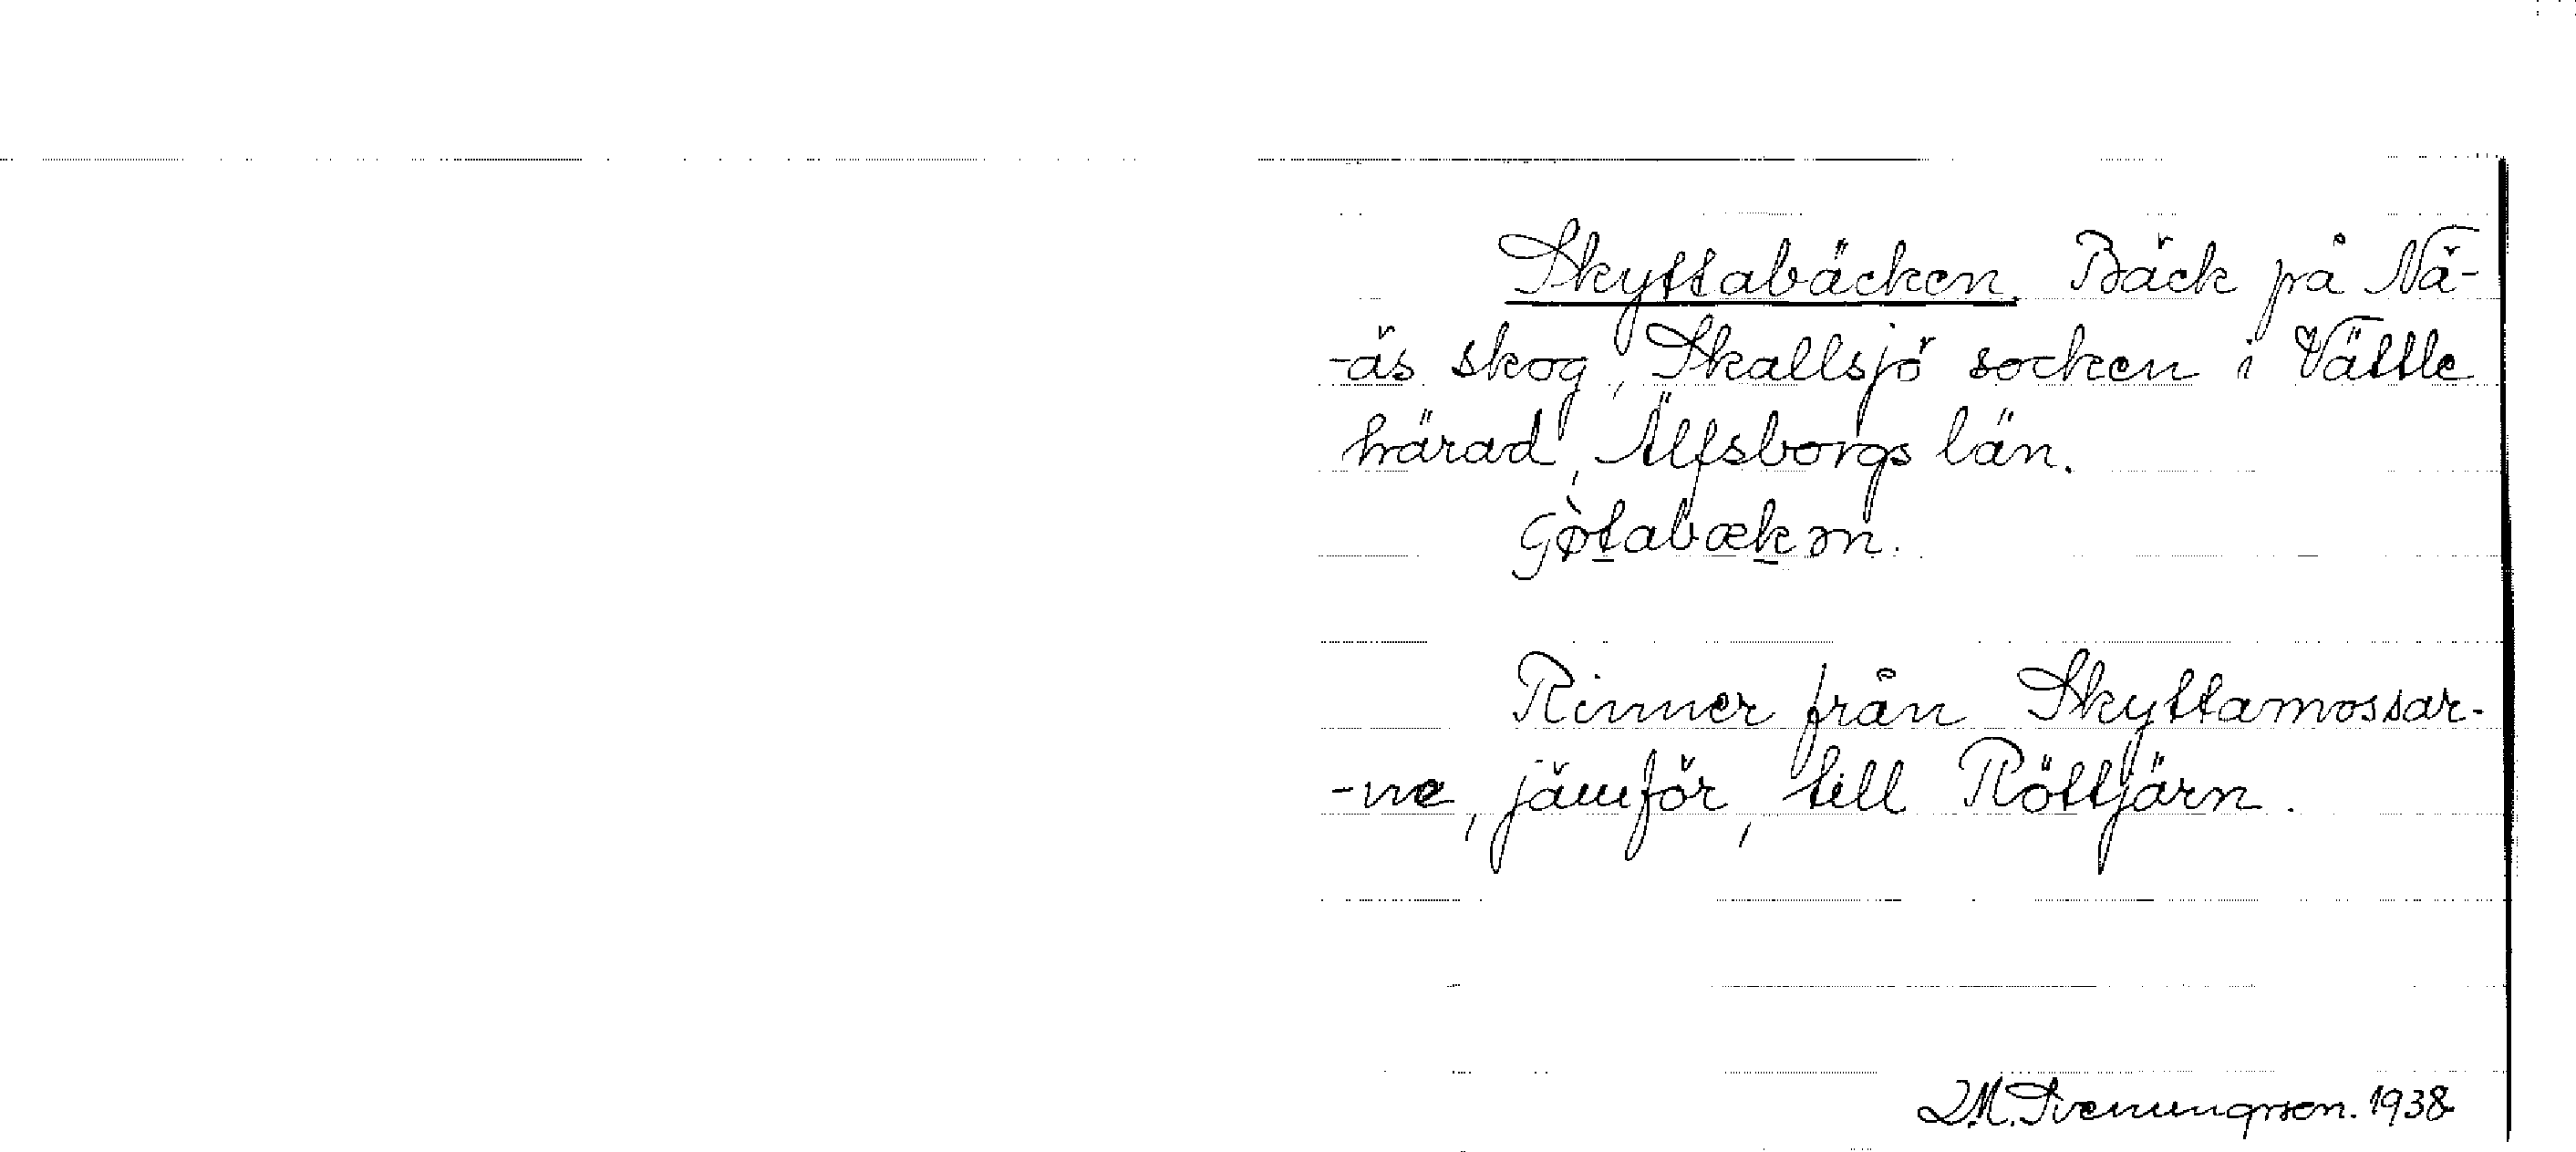 Skyttabäcken. Bäck på Nä-
-äs skog, Skallsjö socken i Vättle
härad, Älfsborgs län.
Gø̀tabækən.
Rinner från Skyttamossar-
-ne, jämför, till Röttjärn.
D.M. Svenungsson. 1938